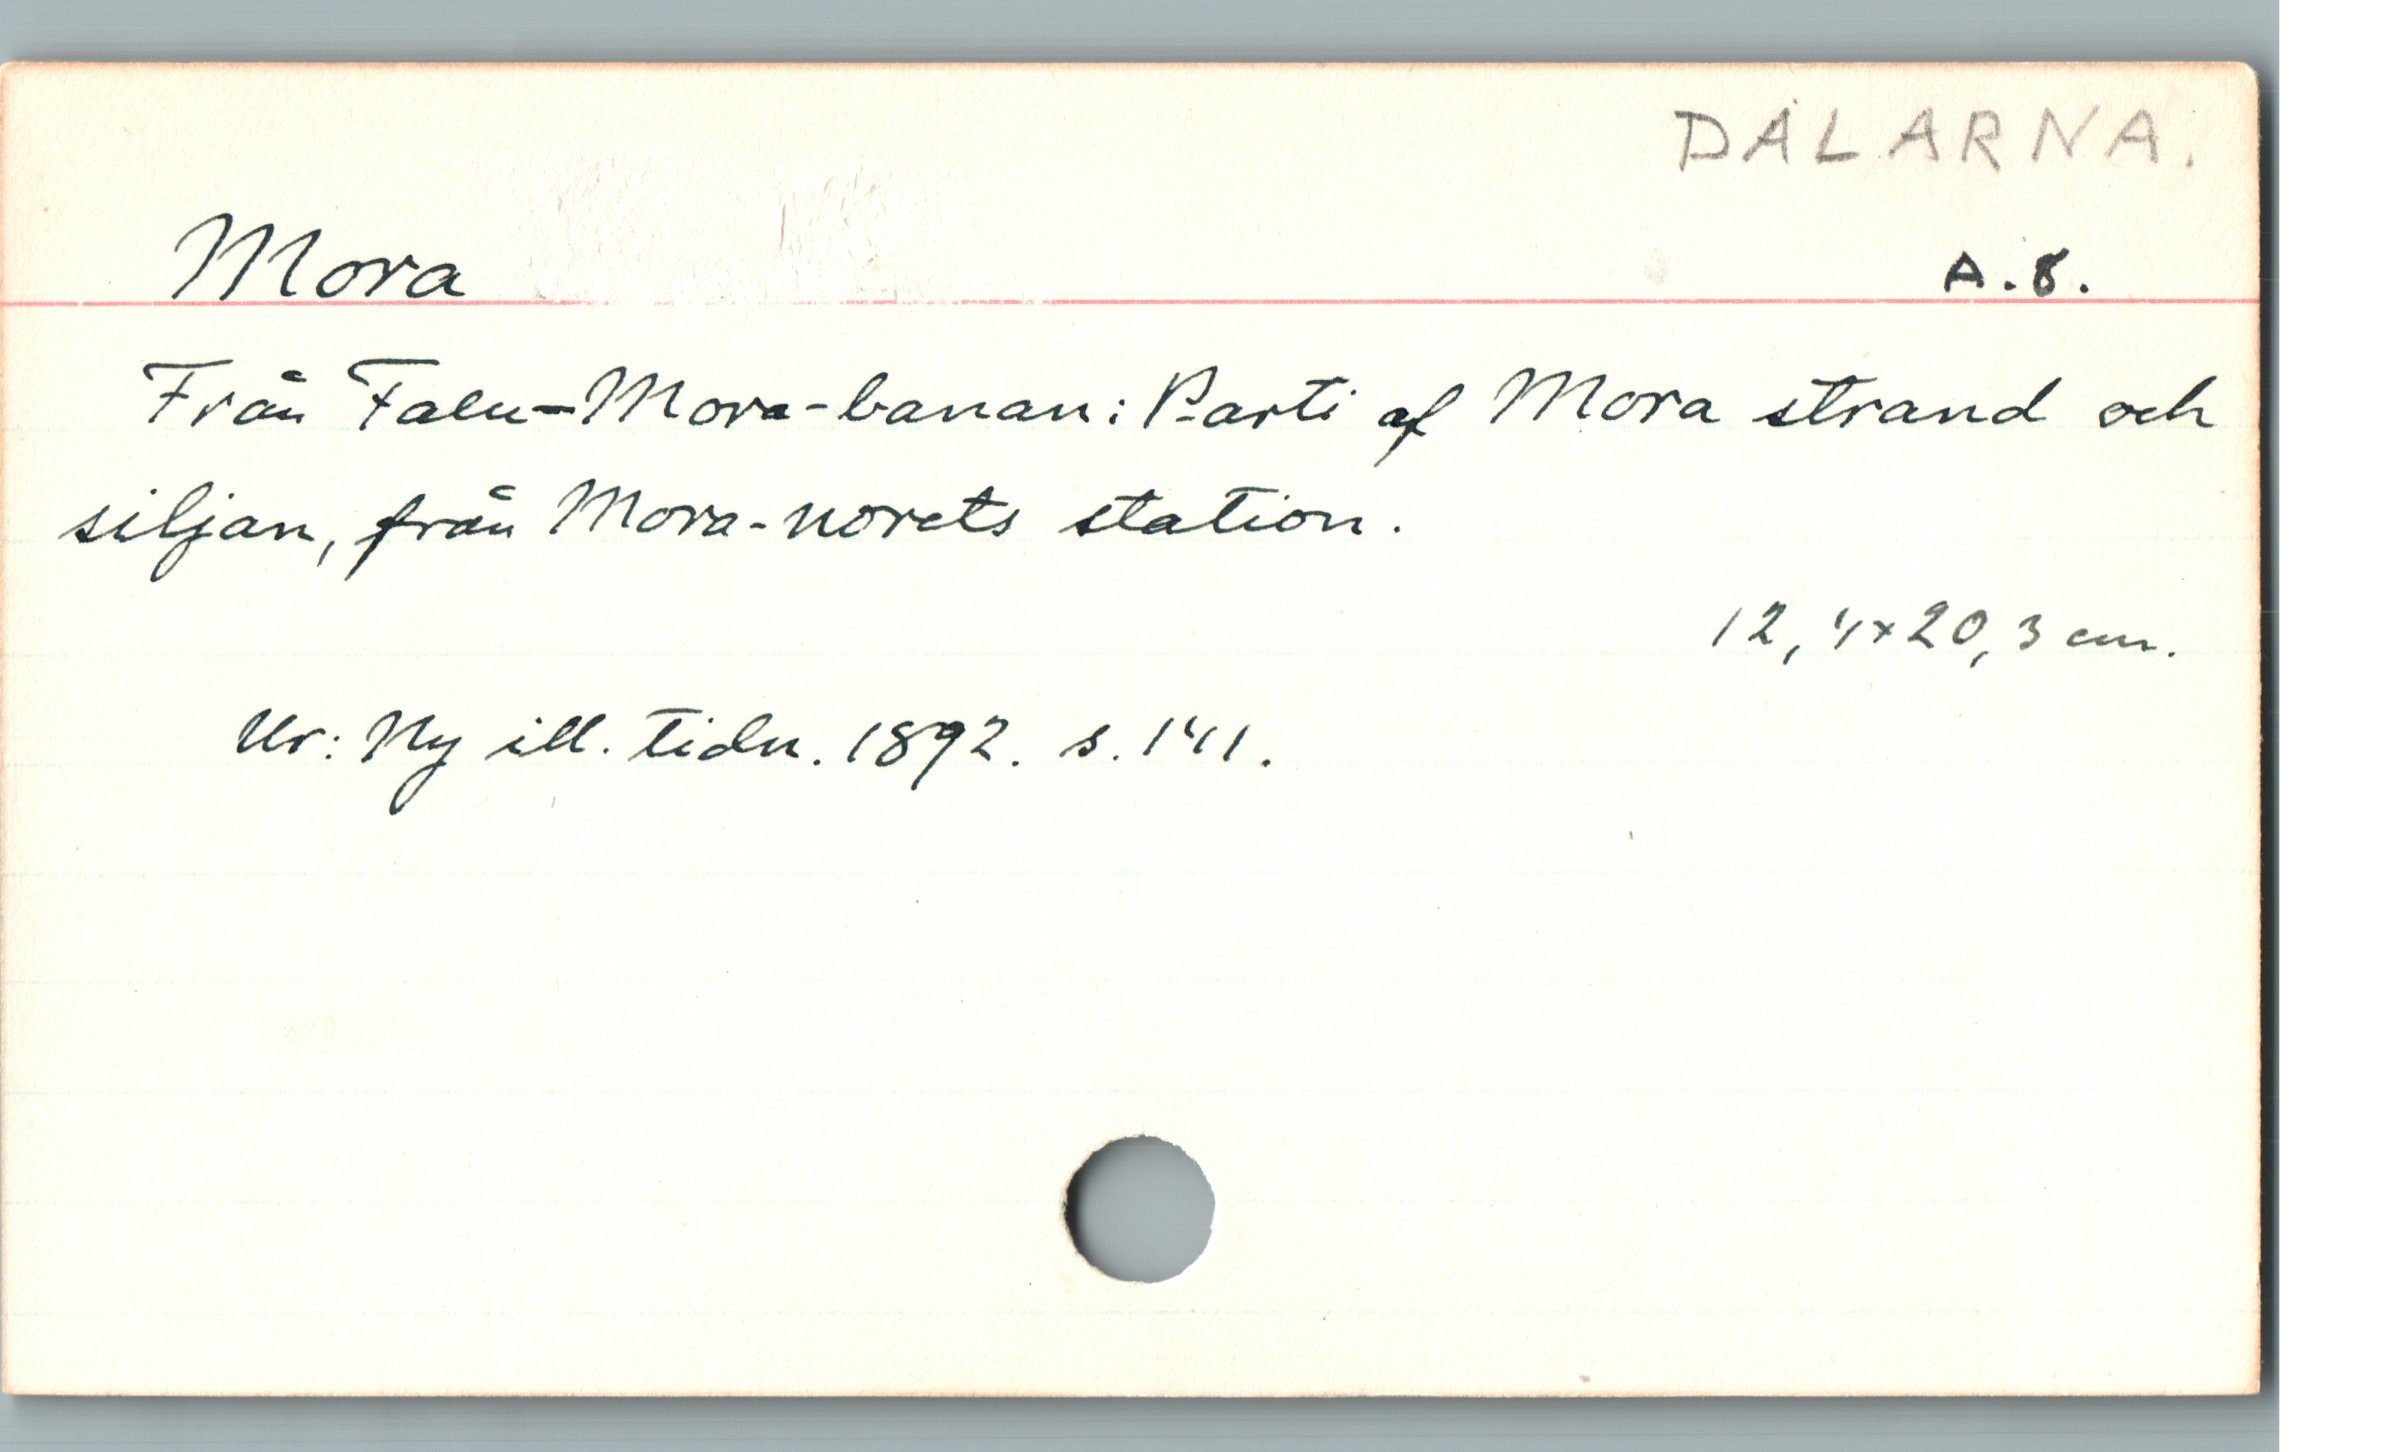 DALARNA.
Mora A.8.
Från Falu-Mora-banan: Parti af Mora strand och
siljan, från Mora-norets station.
12,4×20,3 cm.
Ur: Ny ill. tidn. 1892. s. 141.